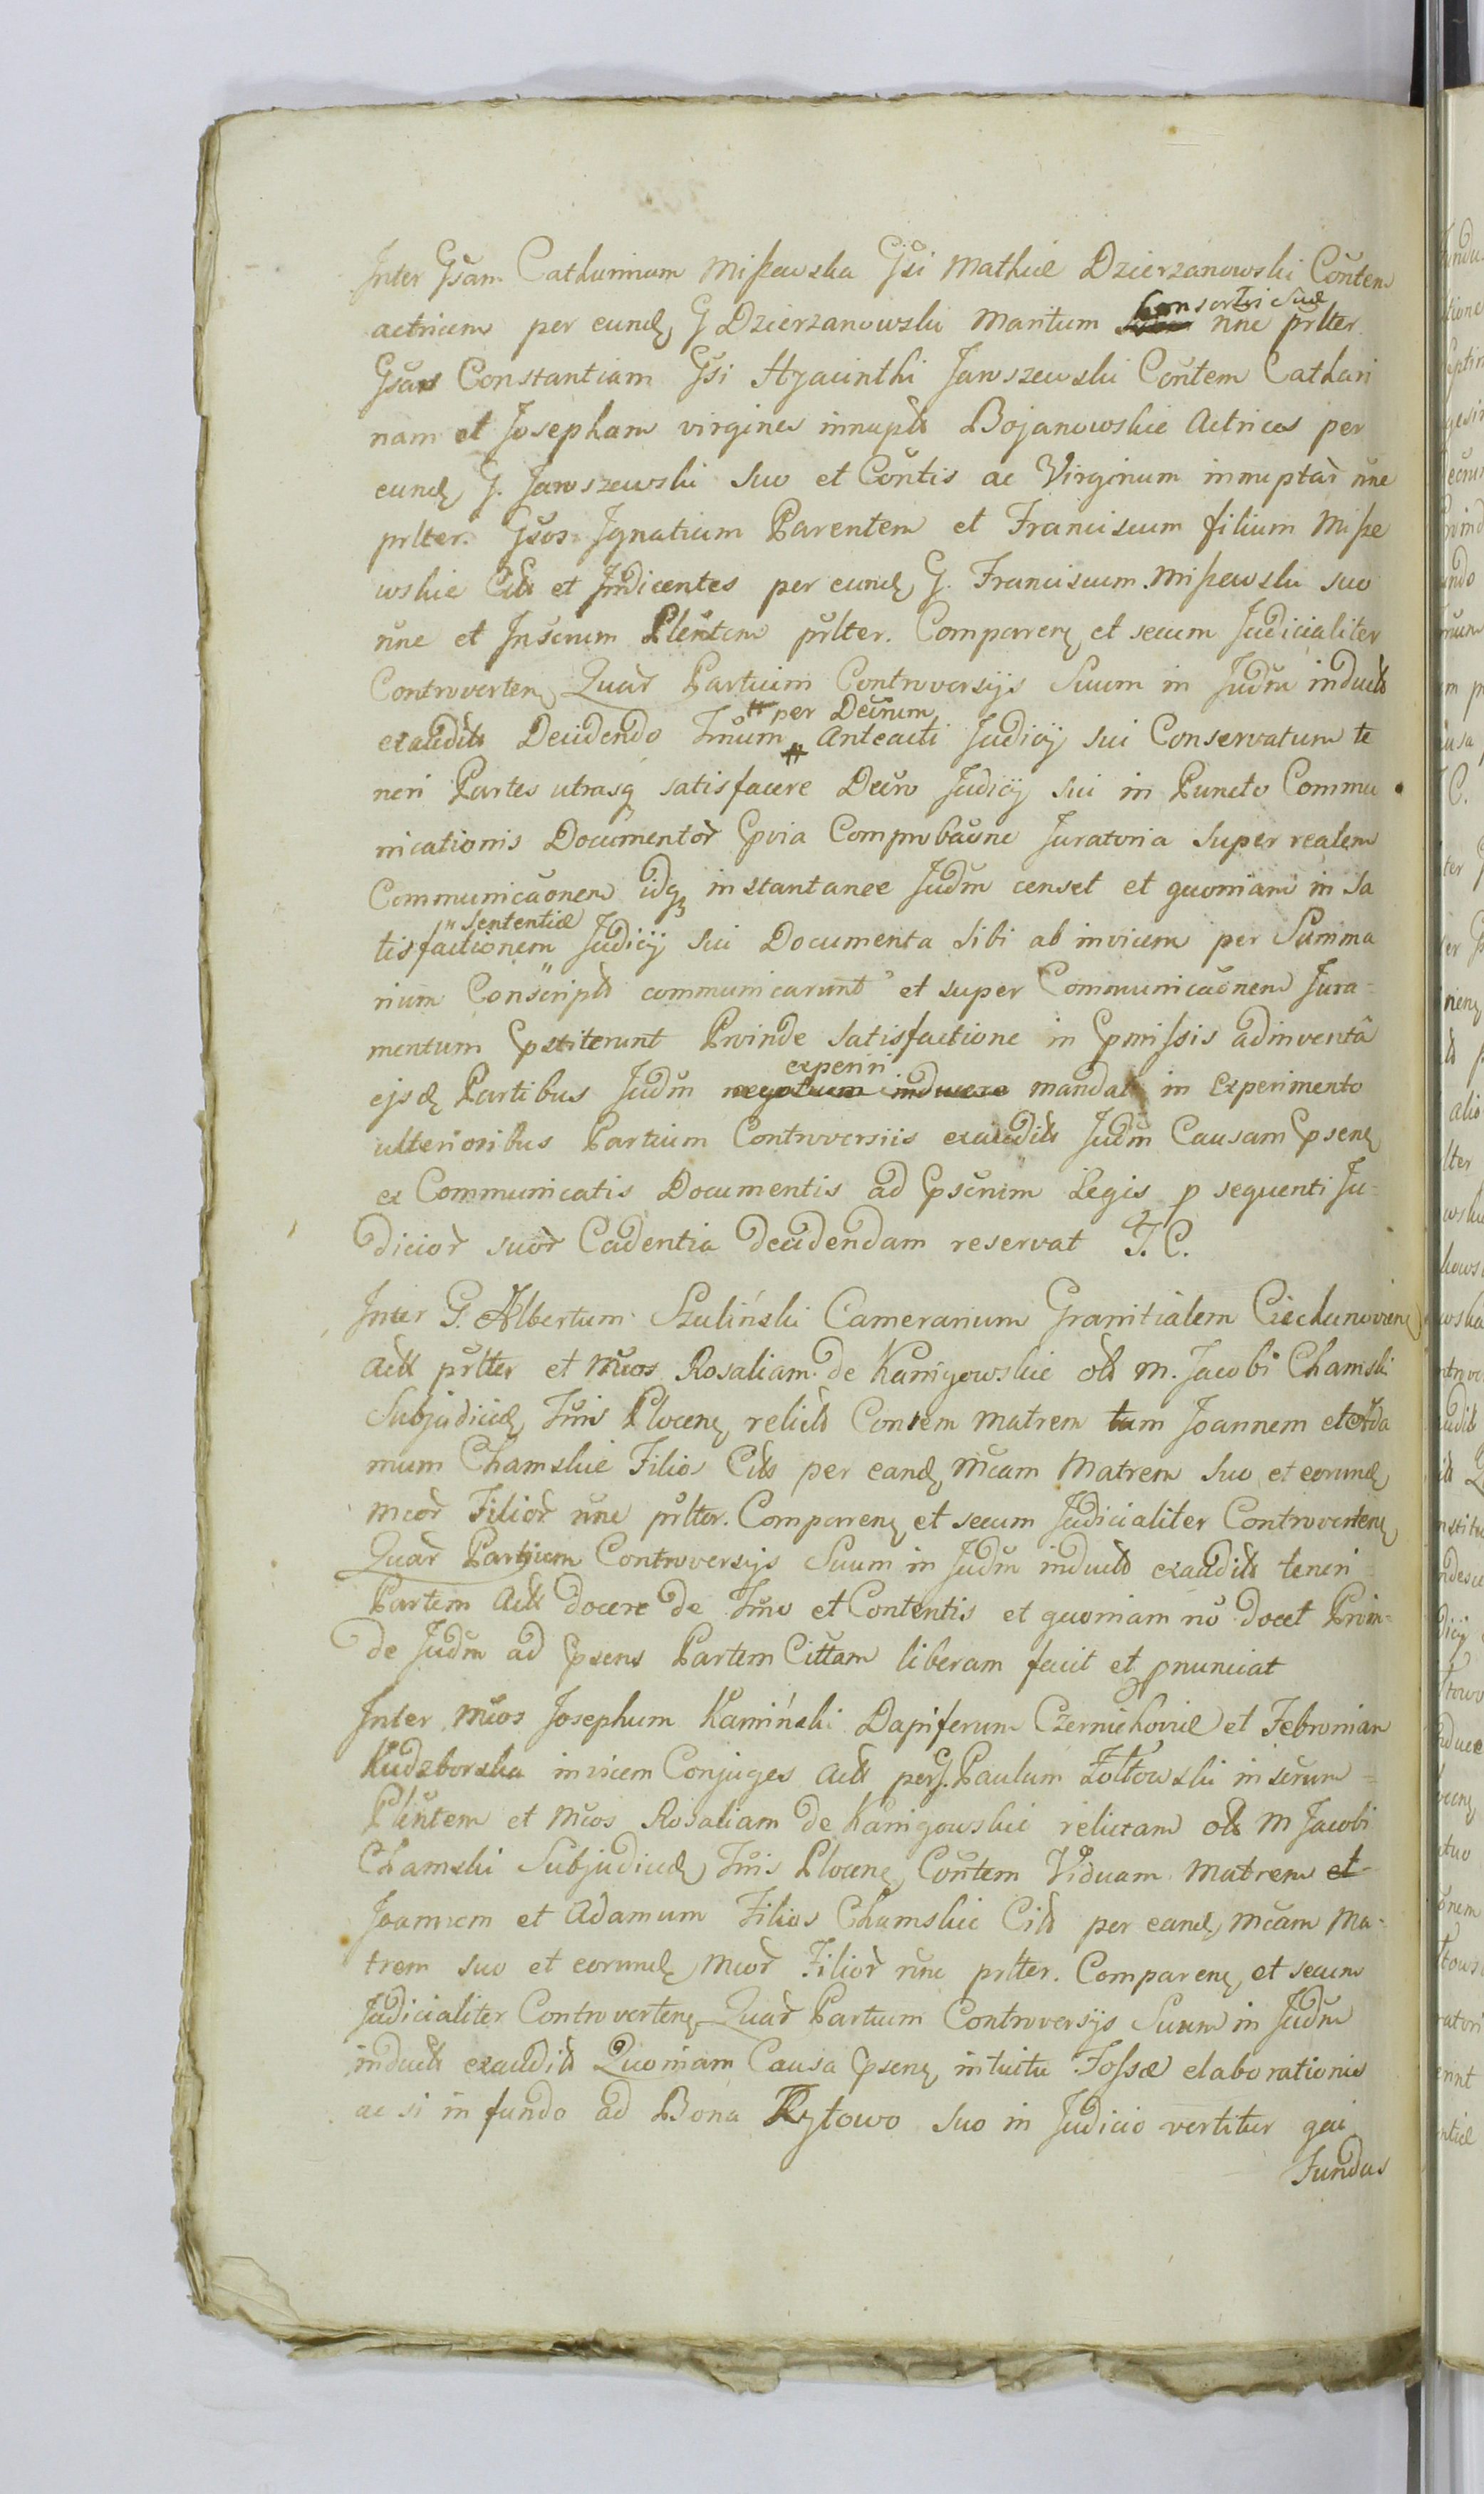 Inter Gsam Catharinam Mißewska Gsi Mathiæ Dzierzanowski Contem
actricem per eund, G Dzierzanowski Maritum Consortis Suæ nne prlter
Gsam Constantiam Gsi Hyacinthi Jaroszewski Contem Cathari
nam et Josepham virgines innuptas Bojanowskie Actrices per
eund, G. Jaroszewski suo et Contis ac Virginum innuptar nne
prlter. Gsos Ignatium Parentem et Franciscum filium Miße
wskie Citts et Indicentes per eund, G. Franciscum Mißewski suo
nne et Inserum Plentem prlter. Comparen, et secum Judicialiter
Controverten, Quar Partium Controversijs Suum in Judm inductis
exauditis Decidendo Tmum # per Decrum # Anteacti Judicij sui Conservatum te
neri Partes utrasq satisfacere Decro Judicij sui in Puncto Commu
nicationis Documentor pvia Comprobaone Juratoria super realem
Communicaonem idq instantanee Judm censet et quoniam in sa
tisfactionem " Sententiæ Judicij sui Documenta sibi ab invicem per Summa
rium Conscriptis communicarunt et super Communicaonem Jura-
mentum pstiterunt Proinde satisfactione in pmissis adinventâ
ejsd, Partibus Judm negotium inducere experiri mandat in Experimento
ulterioribus Partium Controversiis exauditis Judm Causam psen,
ex Communicatis Documentis ad pscrum Legis p sequenti Ju-
dicior suor Cadentia decidendam reservat T. C.
Inter G. Albertum Szuliński Camerarium Granitialem Ciechanovien,
Actt prlter et Mcos Rosaliam de Kanigowskie olt M. Jacobi Chamski
Subjudicis, Tmis Plocen, relictt Contem Matrem tum Joannem et Ada
mum Chamskie Filios Citts per eand, Mcam Matrem suo et eorund,
Mcor Filior nne prlter. Comparen, et secum Judicialiter Controverten,
Quar Partium Controversijs Suum in Judm inductis exauditis teneri-
Partem Actt docere de Tmo et Contentis et quoniam no docet Proin-
de Judm ad psens Partem Cittam liberam facit et pnunciat
Inter Mcos Josephum Kamiński Dapiferum Czerniehoviæ et Febroniam
Kudzborska invicem Conjuges Actt per G. Paulum Żołtowski inserum-
Plentem et Mcos Rosaliam de Kanigowskie relictam olt M Jacobi
Chamski Subjudicis, Tmis Plocen, Contem Viduam Matrem et
Joannem et Adamum Filios Chamskie Citts per eand, Mcam Ma-
trem suo et eorund, Mcor Filior nne prlter. Comparen, et secum
Judicialiter Controverten, Quar Partium Controversijs Suum in Judm
inductis exauditis Quoniam Causa psen, intuitu Fossæ elaborationis
ac si in fundo ad Bona Rytowo suo in Judicio vertitur qui
Fundus